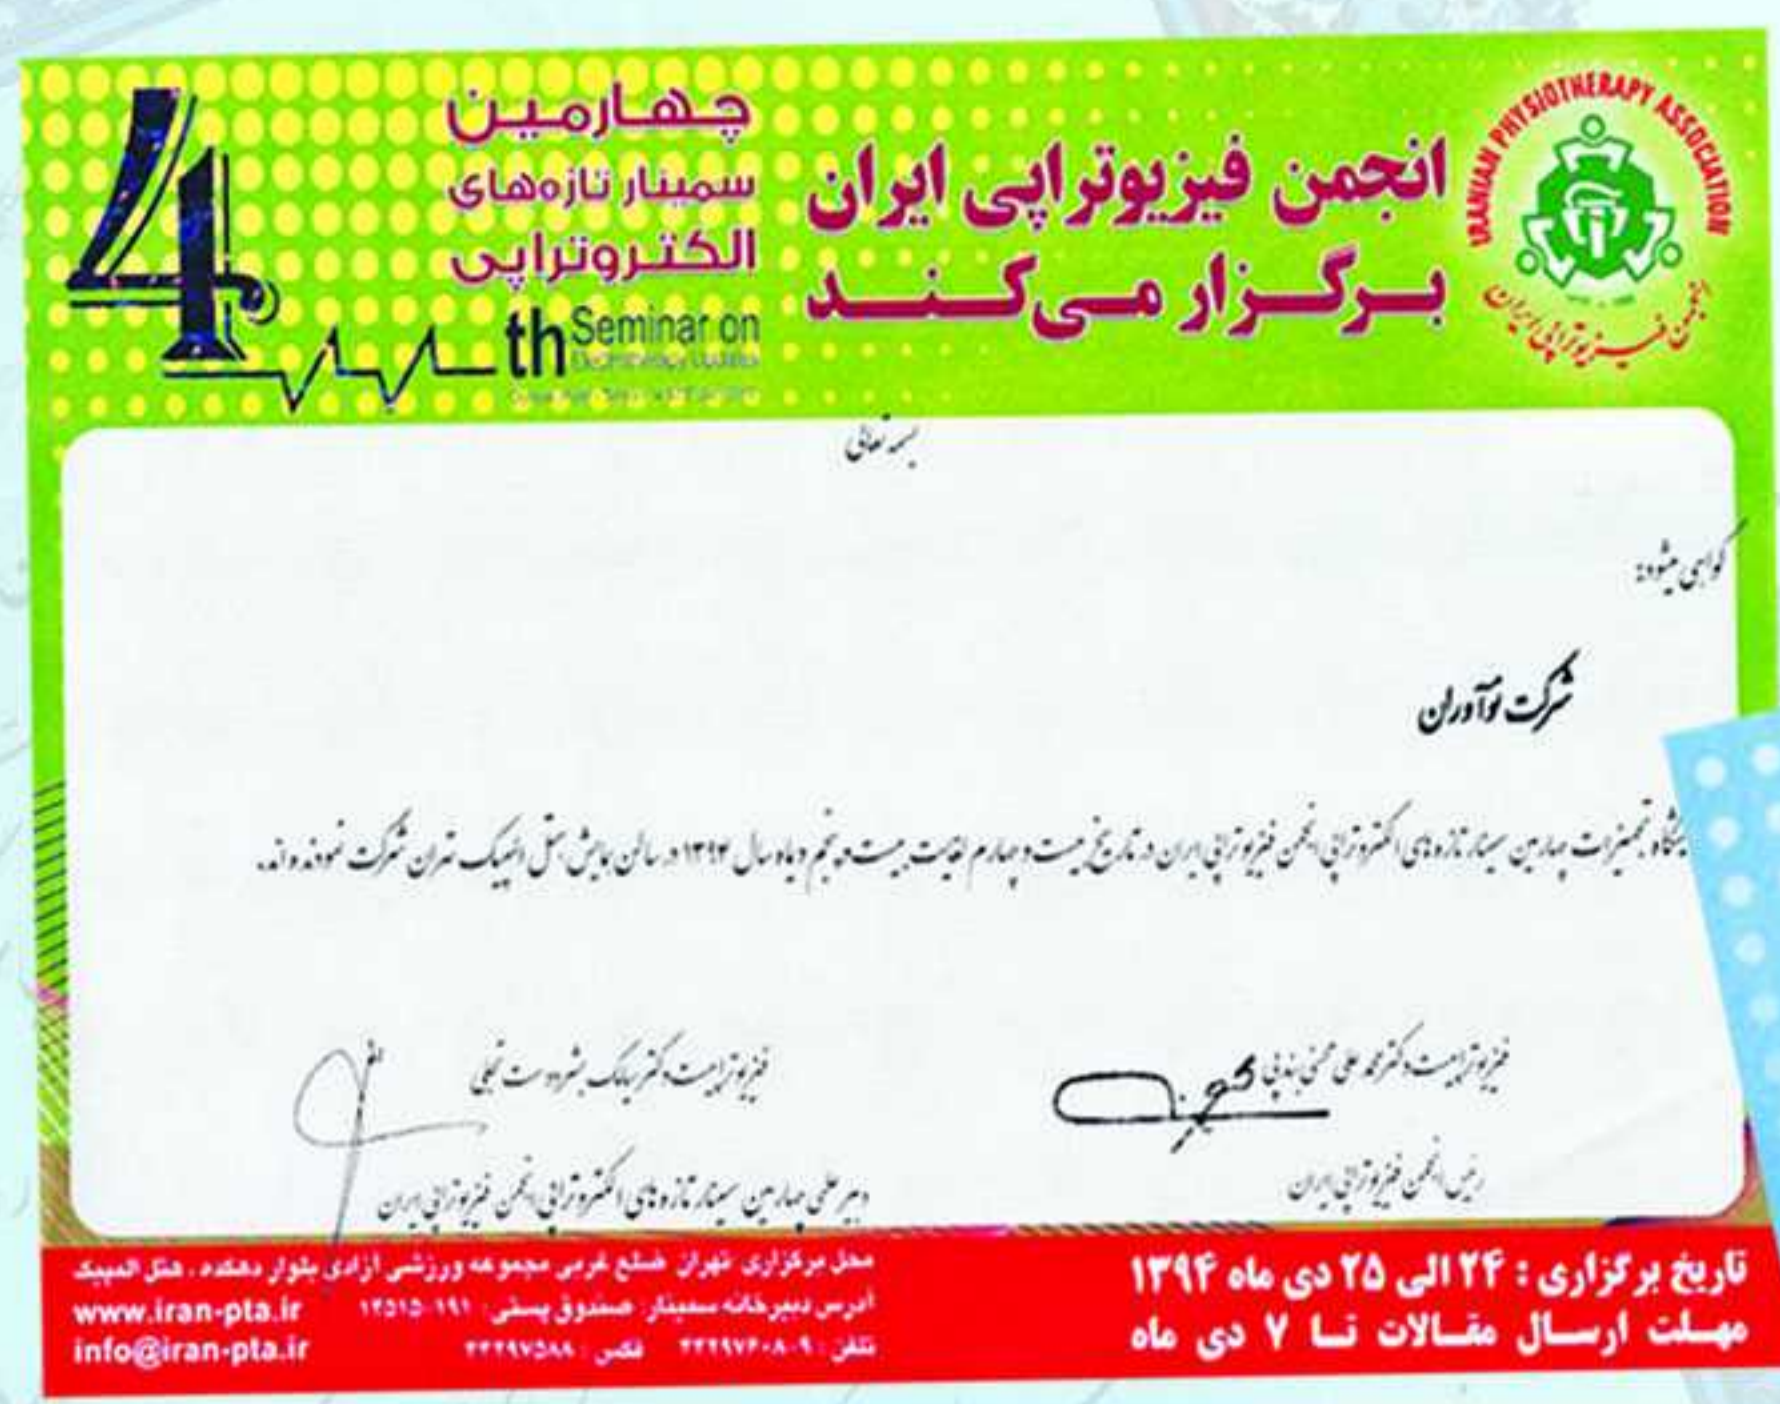 IRANIAN PHYSIOTHERAPY ASSOCIATION
انجمن فیزیوتراپی ایران
انجمن فیزیوتراپی ایران
برگزار می‌کند
چهارمین
سمینار تازه‌های
الکتروتراپی
4th Seminar on
Electrotherapy Updates
بسمه تعالی
گواهی میشود:
شرکت نوآوران
تجهیزات چهارمین سمینار تازه های الکتروتراپی انجمن فیزیوتراپی ایران در تاریخ بیست و چهارم لغایت بیست و پنجم دیماه سال ۱۳۹۴ در سالن همایش هتل المپیک تهران شرکت نموده اند.
فیزیوتراپیست دکتر محمد علی محسنی بندپی
رئیس انجمن فیزیوتراپی ایران
فیزیوتراپیست دکتر سیامک بشردوست تجلی
دبیر علمی چهارمین سمینار تازه های الکتروتراپی انجمن فیزیوتراپی ایران
تاریخ برگزاری : ۲۴ الی ۲۵ دی ماه ۱۳۹۴
مهلت ارسال مقالات تا ۷ دی ماه
محل برگزاری: تهران ضلع غربی مجموعه ورزشی آزادی بلوار دهکده ، هتل المپیک
آدرس دبیرخانه سمینار: صندوق پستی:
تلفن : فکس :
www.iran-pta.ir
info@iran-pta.ir